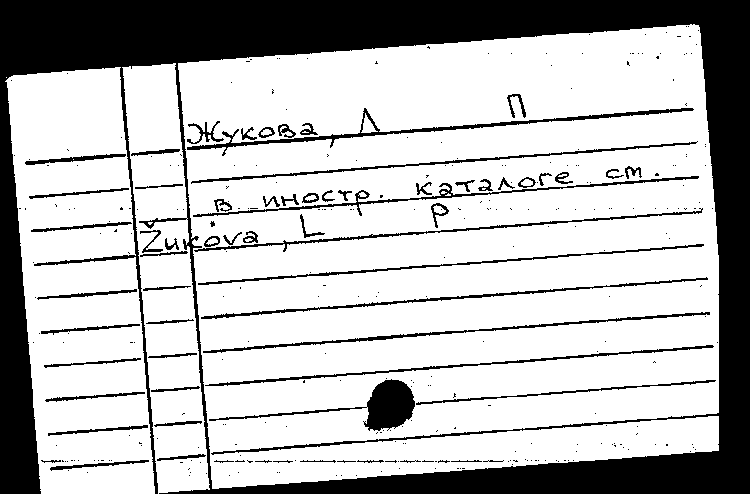 Жукова, Л П
в иностр. каталоге см.
Žukova, L P